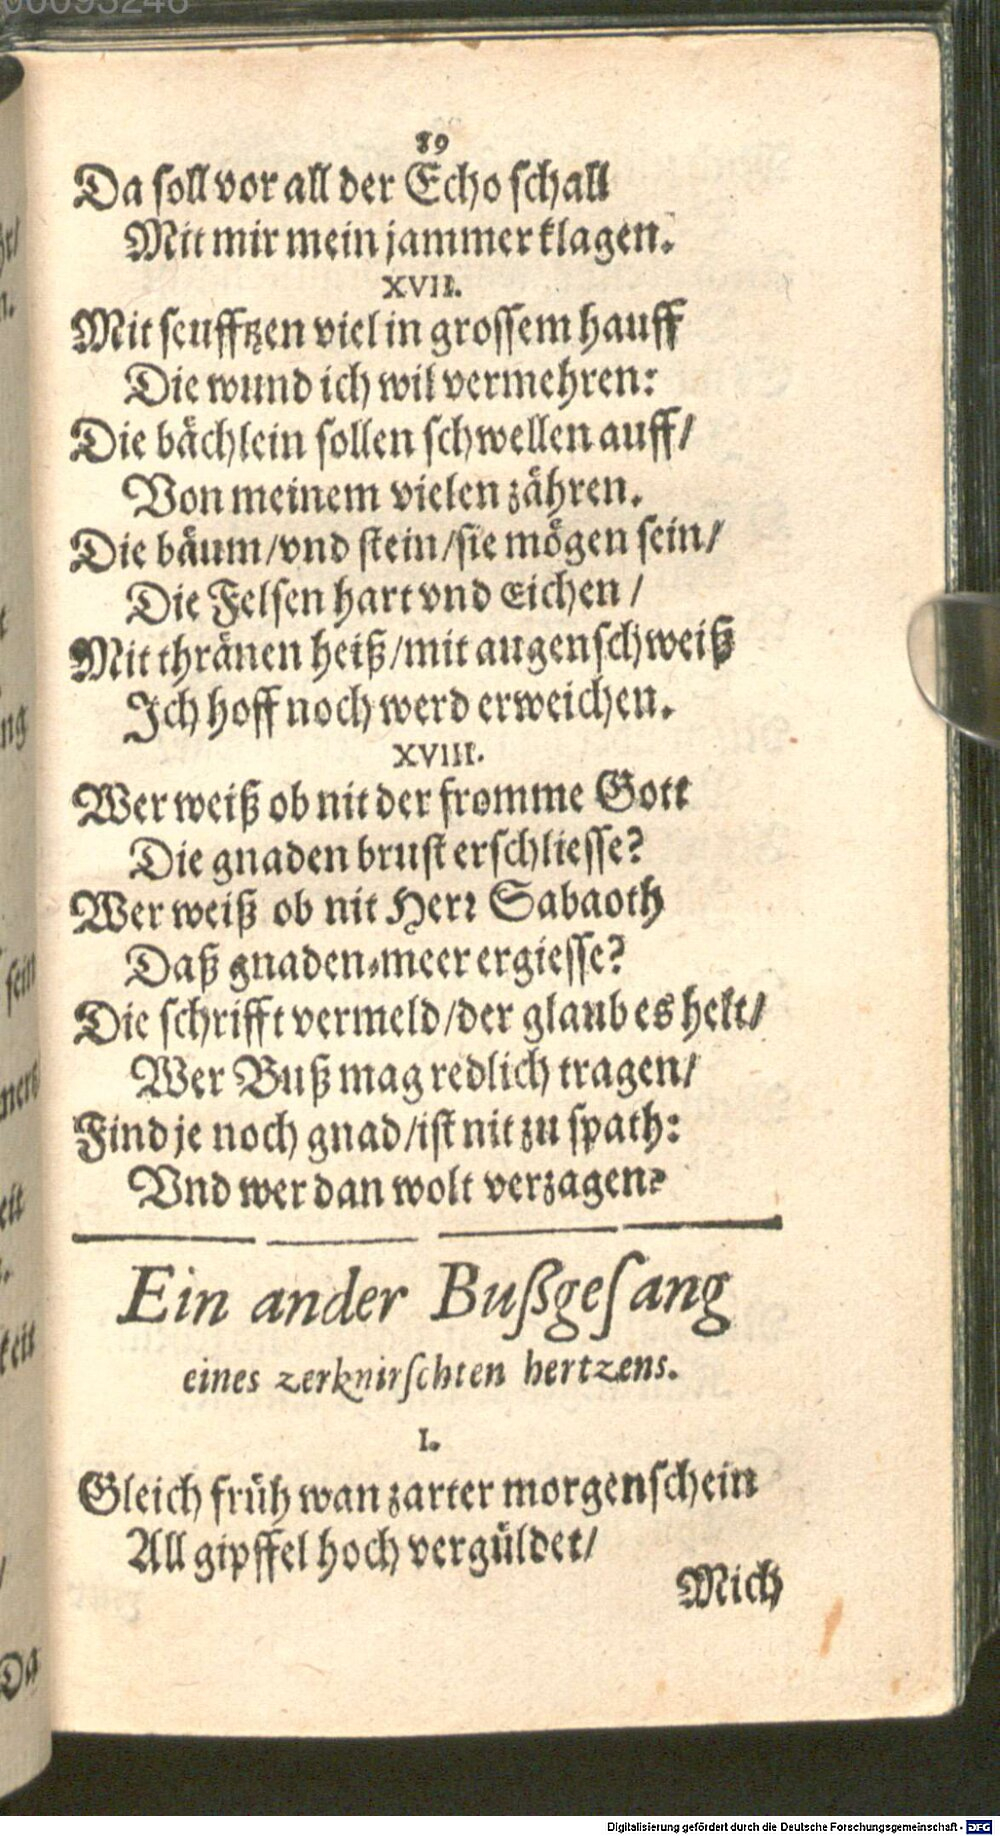 00095246
89
Da soll vor all der Echo schall
Mit mir mein jammer klagen.
XVII.
Mit seufftzen viel in grossem hauff
Die wund ich wil vermehren:
Die bächlein sollen schwellen auff/
Von meinem vielen zähren.
Die bäum/vnd stein/sie mögen sein/
Die Felsen hart vnd Eichen/
Mit thränen heiß/mit augenschweiß
Ich hoff noch werd erweichen.
XVIII.
Wer weiß ob nit der fromme Gott
Die gnaden brust erschliesse?
Wer weiß ob nit Herr Sabaoth
Daß gnaden-meer ergiesse?
Die schrifft vermeld/der glaub es helt/
Wer Buß mag redlich tragen/
Find je noch gnad/ist nit zu spath:
Vnd wer dan wolt verzagen?
Ein ander Bußgesang
eines zerknirschten hertzens.
I.
Gleich früh wan zarter morgenschein
All gipffel hoch vergüldet/
Mich
Digitalisierung gefördert durch die Deutsche Forschungsgemeinschaft - DFG